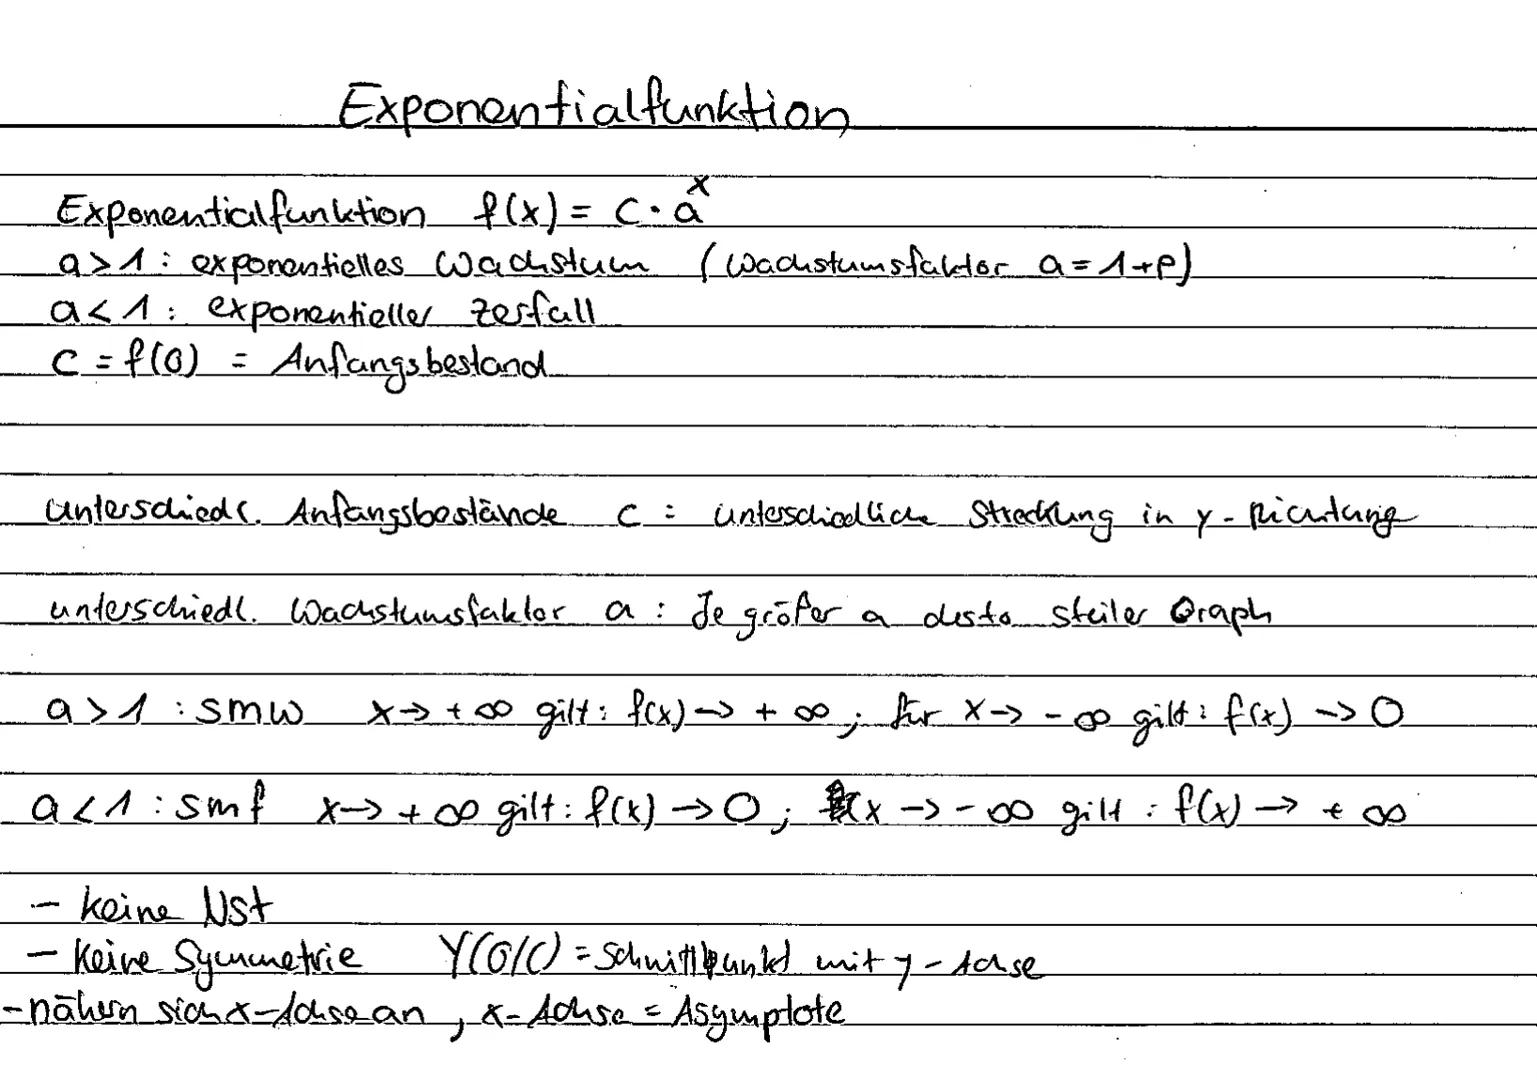 Exponentialfunktion
Exponentialfunktion f(x) = c · a^x
a > 1 : exponentielles Wachstum ( Wachstumsfaktor a = 1+p)
a < 1 : exponentieller Zerfall
c = f(0) = Anfangsbestand
unterschiedl. Anfangsbestände c : unterschiedliche Streckung in y - Richtung
unterschiedl. Wachstumsfaktor a : Je größer a desto steiler Graph
a > 1 : smw x → + ∞ gilt : f(x) → + ∞ ; für x → - ∞ gilt : f(x) → 0
a < 1 : smf x → + ∞ gilt : f(x) → 0 ; x → - ∞ gilt : f(x) → + ∞
- keine Nst
- Keine Symmetrie Y(0/C) = Schnittpunkt mit y - Achse
- nähern sich x-Achse an , x- Achse = Asymptote